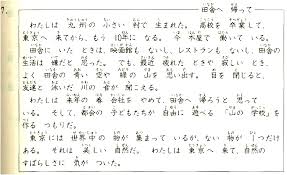 7. 田舎へ 帰って
わたしは 九州の 小さい 町で 生まれた。 高校を 卒業して、
東京へ 来てから、もう 10年に なる。 今 会社で 働いて いる。
田舎に いた ときは、映画館も ないし、レストランも ないし、田舎の
生活は 嫌だと 思った。 でも、最近 疲れた ときや 寂しい とき、
よく 田舎の 青い 空や 緑の 山を 思い出す。 目を 閉じると、
友達と 泳いだ 川の 音が 聞こえる。
わたしは 来年の 春 会社を やめて、田舎に 帰ろうと 思って
いる。 そして、都会の 子どもたちが 自由に 遊べる 「山の 学校」を
作る つもりだ。
東京には 世界中の 物が 集まって いるが、ない 物が 1つだけ
ある。 それは 美しい 自然だ。 わたしは 東京へ 来て、自然の
すばらしさに 気が ついた。